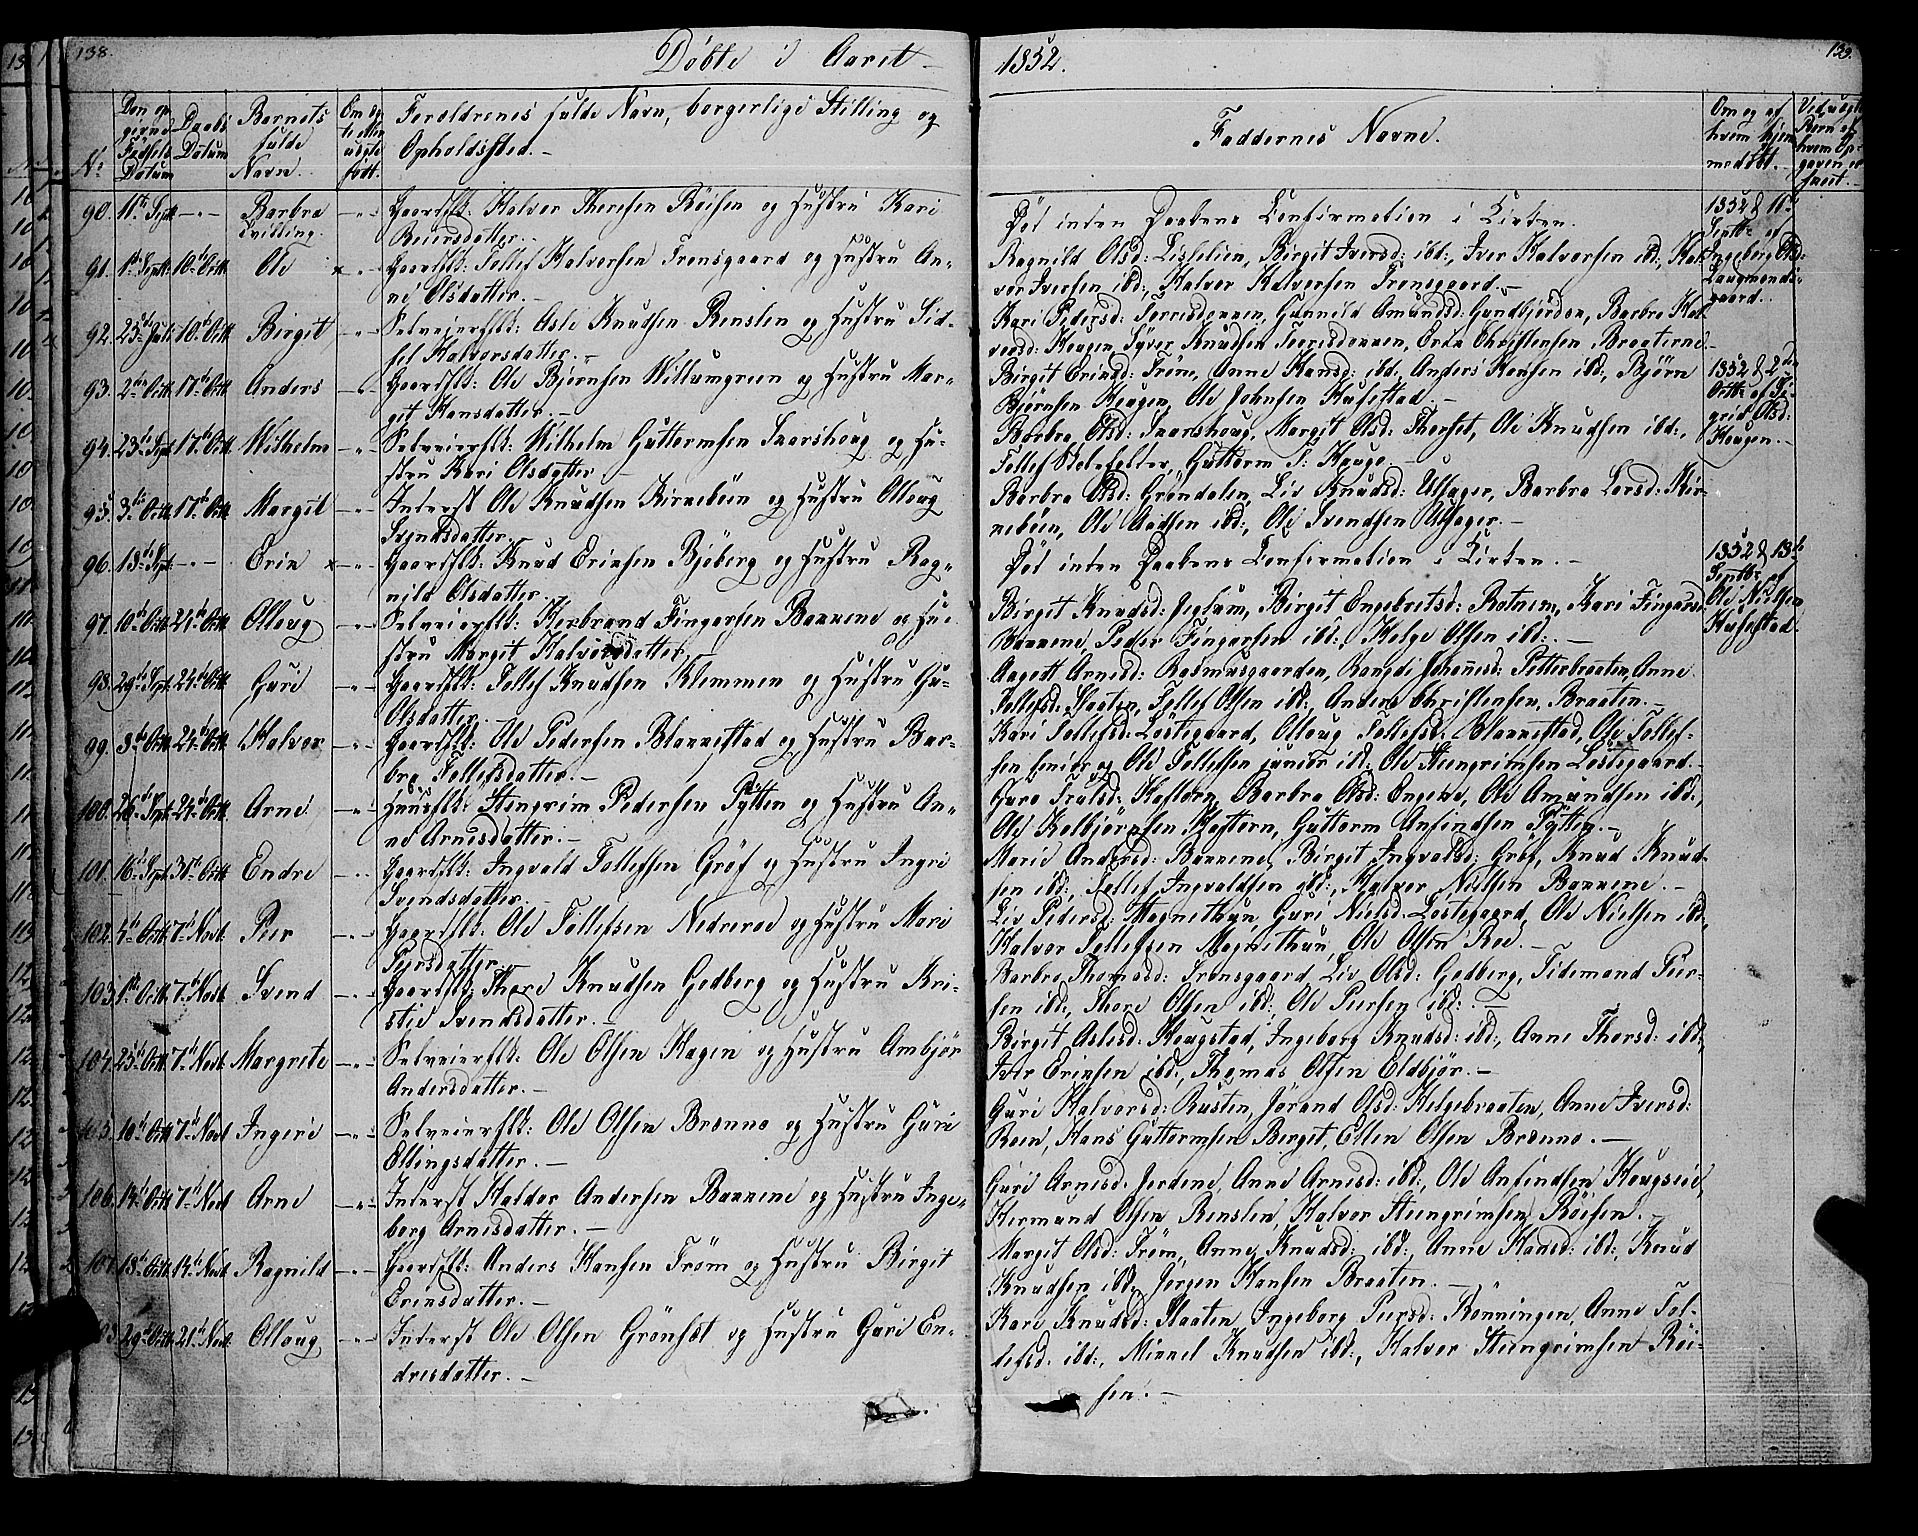 138.
Döbte i Aaret
1852.
139.
No
Den op
givne
Fødsels
Datum
Daabs
Datum
Barnets
fulde
Navn.
Om Eg-
te eller
uegte
født.
Foreldrenes fulde Navn, borgerlige Stilling og
Opholdssted.
Faddernes Navne.
Om og af
hvem hjem
medøbt.
Ved uegte
Børn af
hvem Op-
gaven er
skeet.
90. 11te Sept. -"- Barbra -"- Gaardflk: Halvor Thoresen Röisen og Hustru Kari
Tvilling. Reiersdatter.
Döt inden Daabens Confirmation i Kirken.
1852 d 11te
Septbr af
Ingeborg Olsd:
Laugmands-
gaard.
91. 1te Sept. 10de Octb Ole -"- Gaardflk: Tollef Halvorsen Trønsgaard og Hustru An-
ne Olsdatter.
Ragnild Olsd: Lisselien, Birgit Iversd: ibd:, Iver Halvorsen ibd:, Hal-
vor Iversen ibd:, Halvor Halvorsen Trønsgaard.
92. 25de Juli 10de Octb Birgit -"- Selveierflk: Asle Knudsen Renslen og Hustru Sid-
sel Halvorsdatter.
Kari Pedersd: Torrisdonnen, Gunnild Amundsd: Gundbjørdon, Barbra Hal-
vorsd: Haugen, Syver Knudsen Torrisdonnen, Erik Christensen Braaterne.
93. 2den Octb 17de Octb Anders -"- Gaardflk: Ole Bjørnsen Willumgreen og Hustru Mar-
git Hansdatter.
Birgit Eriksd: Tröm, Anne Hansd: ibd:, Anders Hansen ibd:, Bjørn
Bjørnsen Haugen, Ole Johnsen Husestad.
1852 d 2den
Octbr af Si-
grid Olsd:
Haugen.
94. 23de Sept. 17de Octb Wilhelm -"- Selveierflk: Wilhelm Guttormsen Snarshoug og Hu-
stru Kari Olsdatter
Barbra Olsd: Snarshoug, Margit Olsd: Thorset, Ole Knudsen ibd:,
Tollef Stolefolter, Guttorm T: Hauge.
95. 3die Octb 17de Octb Margit -"- Inderst Ole Knudsen Kirkebøen og Hustru Olloug
Svendsdatter.
Barbra Olsd: Gröndalen, Liv Knudsd: Ulsager, Barbra Larsd: Kir-
kebøen, Ole Aadsen ibd:, Ole Svendsen Ulsager.
96. 13de Sept. -"- Erik -"- Gaardflk: Knud Eriksen Bjöberg og Hustru Rag-
nild Olsdatter.
Döt inden Daabens Confirmation i Kirken.
1852 d 13de
Septbr af
Ole Nilssen
Husestad.
97. 10de Octb 24de Octb Olloug -"- Selveierflk: Herbrand Fingarsen Bakkene og Hu-
stru Margit Halvorsdatter.
Birgit Knudsd: Jeglum, Birgit Engebretsd: Rotnem, Kari Fingarsd:
Bakkene, Peder Fingarsen ibd:, Helge Olsen ibd:.
98. 29de Sept. 24de Octb Guri -"- Gaardflk: Tollef Knudsen Klemmen og Hustru Gu-
Olsdatter.
Aagott Arnesd: Rasmusgaarden, Randi Johannesd: Petterbraaten, Anne
Tollefsd: Slaaten, Tollef Olsen ibd:, Anders Christensen, Braaten.
99. 3die Octb 24de Octb Halvor -"- Gaardflk: Ole Pedersen Blakkestad og Hustru Bar-
bra Tollefsdatter.
Kari Tollefsd: Löstegaard, Olloug Tollefsd: Blakkestad, Ole Tollef-
sen senior og Ole Tollefsen junior ibd:, Ole Steengrimsen Löstegaard.
100. 26de Sept. 24de Octb Arne -"- Huusflk: Stengrim Pedersen Pytten og Hustru An-
ne Arnesdatter.
Guro Trulsd: Haftorn, Barbra Olsd: Engene, Ole Amundsen ibd:,
Ole Kolbjørnsen Haftorn, Guttorm Anfindsen Pytten.
101. 16de Sept. 31te Octb Endre -"- Gaardflk: Ingvald Tollefsen Gröf og Hustru Ingri
Svendsdatter.
Marie Andersd: Bakkene, Birgit Ingvaldsd: Gröf, Knud Knud-
sen ibd:, Tollef Ingvaldsen ibd:, Halvor Nilsen Bakkene.
102. 4de Octb 7de Novb Peer -"- Gaardflk: Ole Tollefsen Nedreroe og Hustru Mari
Peersdatter.
Liv Pedersd: Magnethun, Guri Nielsd: Löstegaard, Ole Nielsen ibd:,
Halvor Tollefsen Magnethun, Ole Olsen Roe.
103. 1te Octb 7de Novb Svend -"- Gaardflk: Thore Knudsen Gedberg og Hustru Kri-
stie Svendsdatter.
Barbra Thomasd: Trønsgaard, Liv Olsd: Gedberg, Tidemand Peer-
sen ibd:, Thore Olsen ibd:, Ole Peersen ibd:.
104. 25de Octb 7de Novb Margrete -"- Selveierflk: Ole Olsen Hagen og Hustru Ambjör
Andersdatter.
Birgit Aslesd: Haugstad, Ingeborg Knudsd: ibd:, Anne Thorsd: ibd:,
Iver Eriksen ibd:, Thomas Olsen Eldbjör.
105. 10de Octb 7de Novb Ingeri -"- Selveierflk: Ole Olsen Brænno og Hustru Guri
Ellingsdatter.
Guri Halvorsd: Rusten, Jörand Olsd: Helgebraaten, Anne Iversd:
Roen, Hans Guttormsen Bergit, Ellen Olsen Brænno.
106. 14de Octb 7de Novb Arne -"- Inderst Haldor Andersen Bakkene og Hustru Inge-
borg Arnesdatter.
Guri Arnesd: Jordene, Anne Arnesd: ibd:, Ole Anfindsen Haugseie,
Hermund Olsen Renslen, Halvor Steengrimsen Röisen.
107. 18de Octb 14de Novb Ragnild -"- Gaardflk: Anders Hansen Tröm og Hustru Birgit
Eriksdatter.
Margit Olsd: Tröm, Anne Knudsd: ibd:, Anne Hansd: ibd:, Knud
Knudsen ibd:, Jörgen Hansen Braaten.
108. 29de Octb 21de Novb Olloug -"- Inderst Ole Olsen Grönset og Hustru Guri En-
dresdatter.
Kari Knudsd: Slaaten, Ingeborg Peersd: Rönningen, Anne Tol-
lefsd: ibd:, Mikkel Knudsen ibd:, Halvor Steengrimsen Röi-
sen.